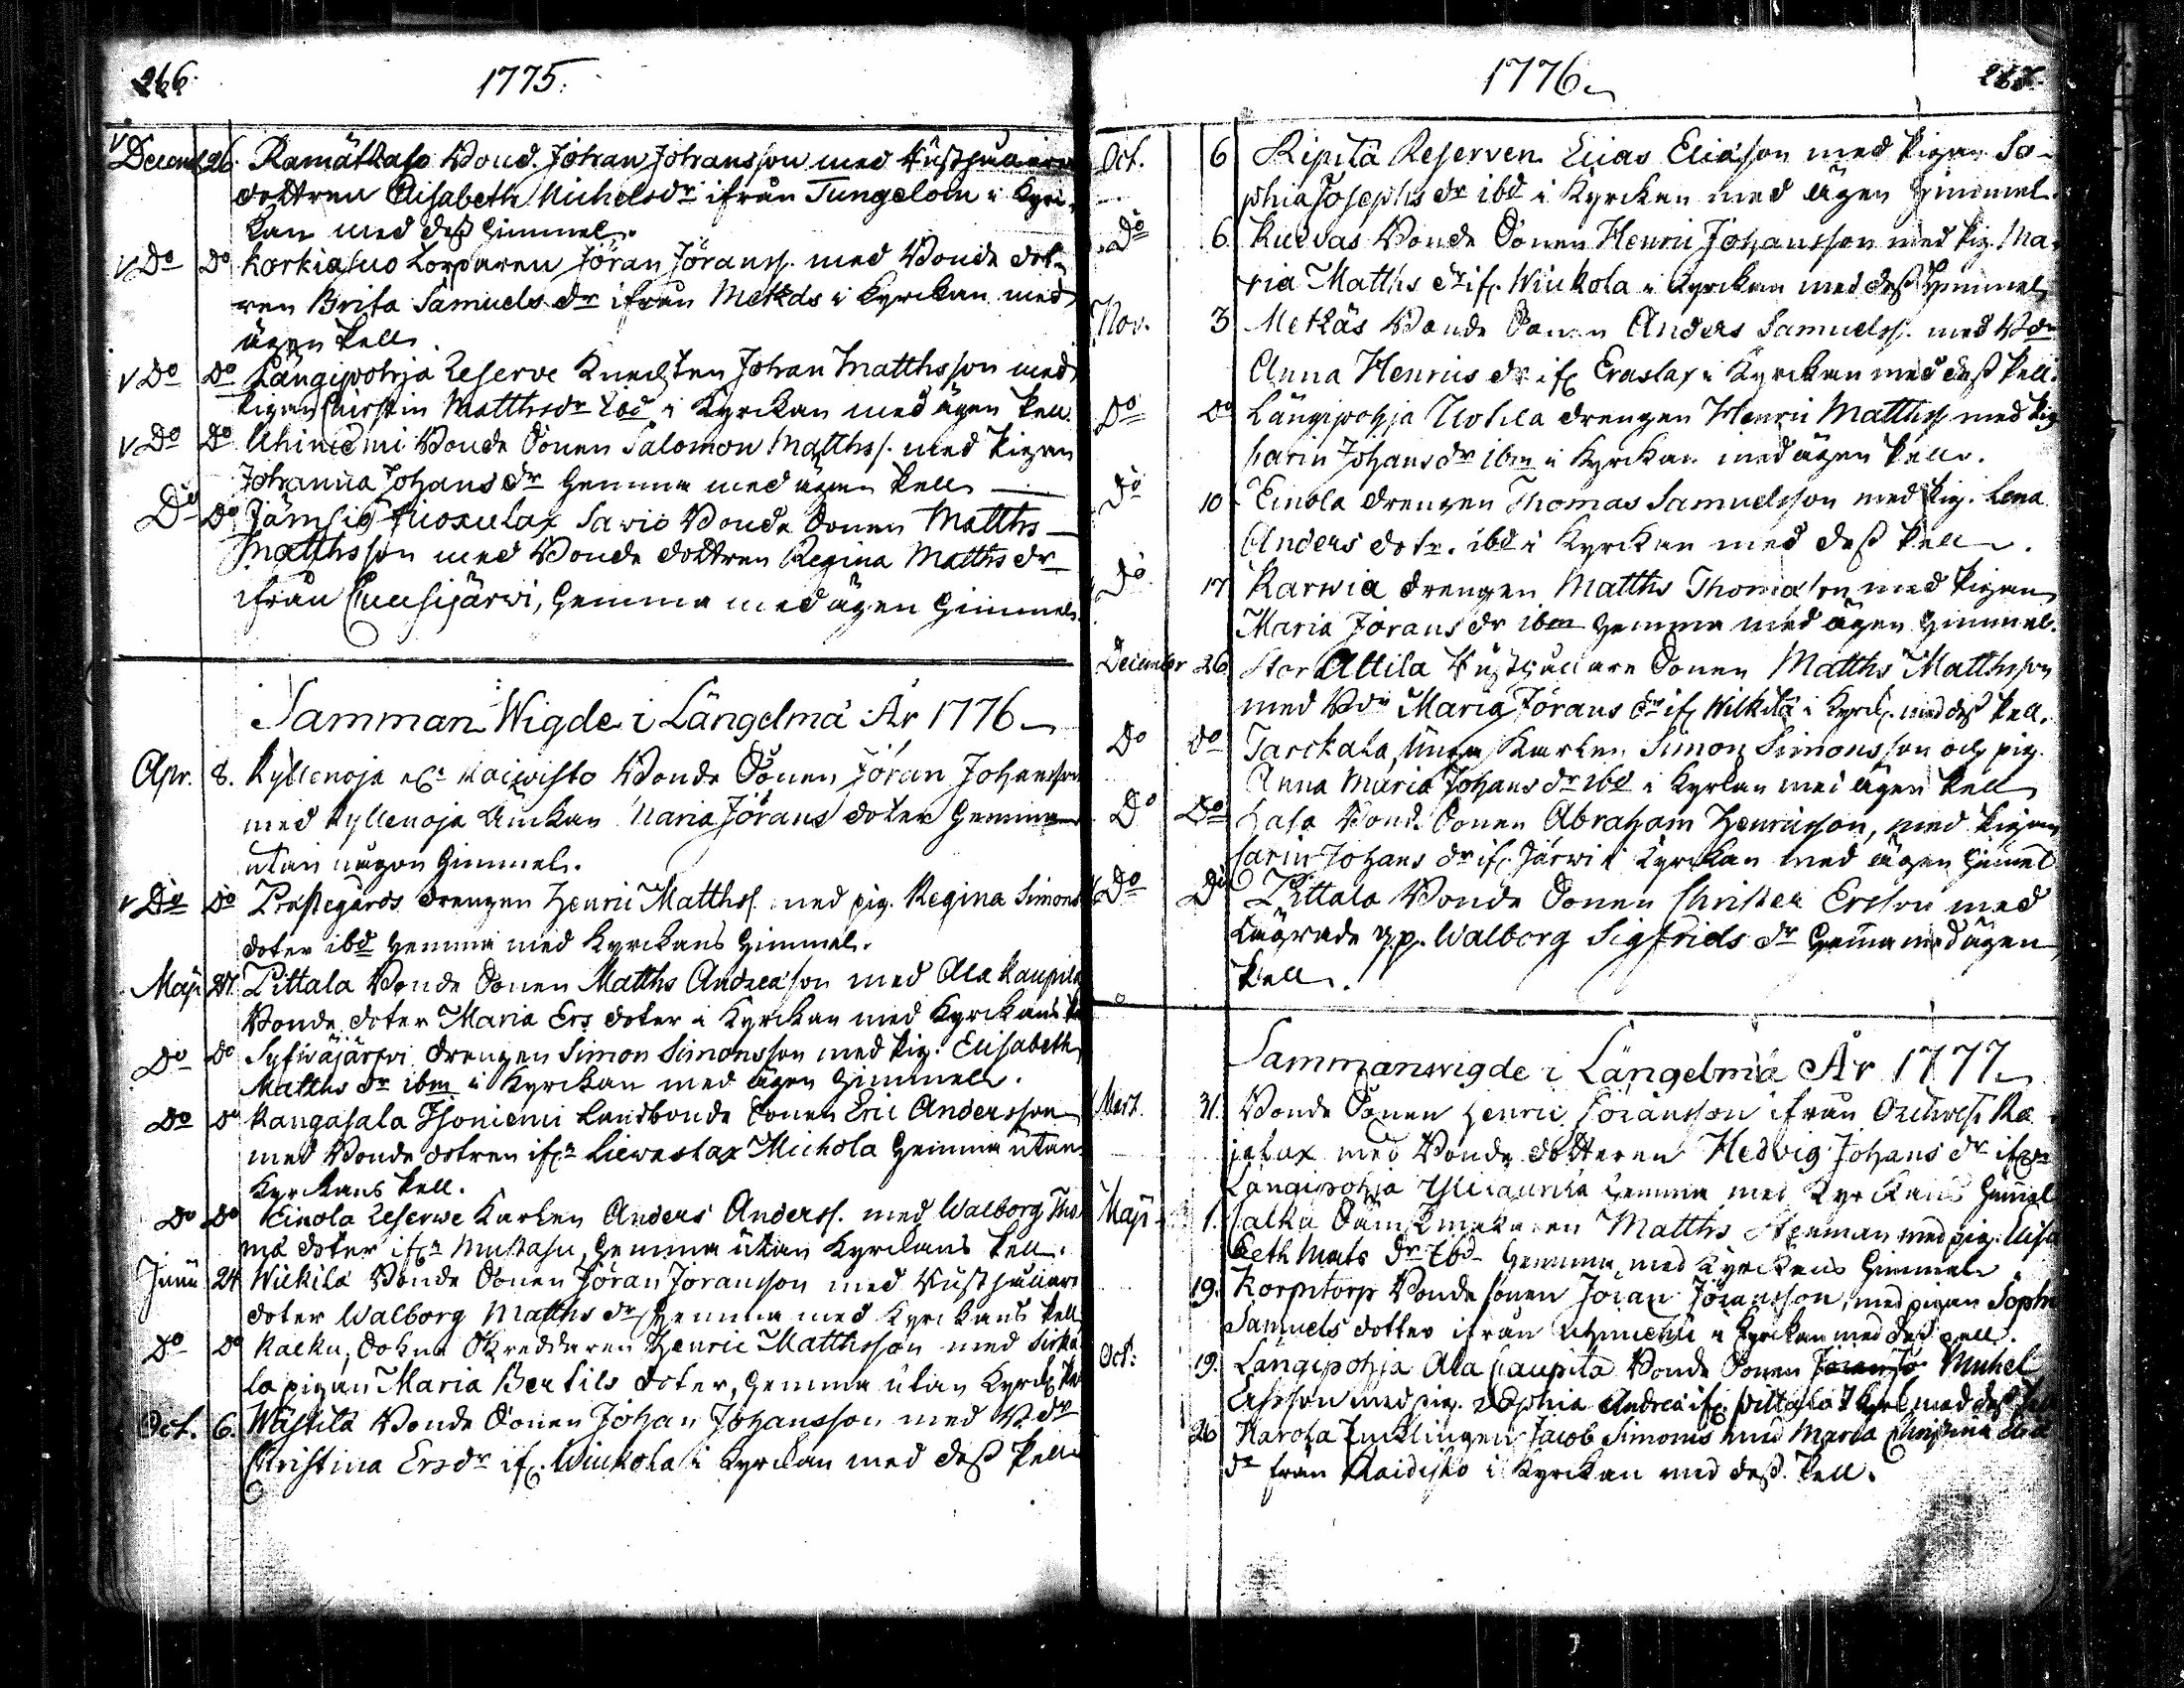 266.
1775.
Decemb. 26. Ramätkaso Bond. Johan Johansson med Rusthållare
dottren Elisabeth Michelsdr ifrån Jungelom i Kyrc-
kan med dess Himmel.
Do Do Korkiasuo Torparen Jöran Jöranss. med Bonde dot-
ren Brita Samuels dr ifrån Metkäs i Kyrckan med
ägen Pell.
Do Do Längipohja Reserve Knechten Johan Matthsson med
Pigan Chirstin Matthsdr ibd i Kyrckan med ägen Pell.
Do Do Uhiniemi Bonde Sonen Salomon Matthss. med Pigan
Johanna Johans dr hemma med ägen Pell
Do Do Jämsiö Sawio Bonde Sonen Matths
Matthsson med Bonde dottren Regina Matths dr
ifrån hemma med ägen Himmel.
Samman Wigde i Längelmä År 1776
Apr. 8. Kyllenoja Bonde Sonen Jöran Johansson
med Kyllenoja Änckan Maria Jörans doter hemma
utan någon Himmel.
Do Do Prästegårds drengen Henric Matthss. med pig. Regina Simons
doter ibd hemma med Kyrckans Himmel.
Maji 27. Pittala Bonde Sonen Matths Andreasson med Ala Kaupila
Bonde doter Maria Ers doter i Kyrckan med Kyrckans
Do Do Syswäjärwi drengen Simon Simonsson med Pig. Elisabeth
Matths dr ibm i Kyrckan med ägen Himmel.
Do Do Kangasala Isoniemi Landbonde Sonen Eric Andersson
med Bonde dotren ifrn Lieweslax Michola hemma utan
Kyrckans Pell.
Do Do Einola Reserwe Karlen Anders Anderss. med Walborg Tho
mæ doter ifrn Mustasu, hemma utan Kyrckans Pell.
Junii 24 Wickilä Bonde Sonen Jöran Joransson med Rusthållare
doter Walborg Matths dr hemma med Kyrckans Pell
Do Do Kalku, Sohna Henric Matthsson med Sirka
la pigan Maria Bertils doter, hemma utan Kyrck.
Oct. 6. Wästilä Bonde Sonen Johan Johansson med B. dr
Christina Ersdr if. Winkola i Kyrckan med dess Pell
1776
267.
Oct. 6 Ripilä Reserven Elias Eliæson med Pigan So-
phia Josephs dr ibd i Kyrckan med ägen Himmel.
Do 6. Kuewas Bonde Sonen Henric Johansson med Pig. Ma-
ria Matths dr if. Winkola i Kyrckan med dess Himmel
Nov. 3 Metkäs Bonde Sonen Anders Samuelss. med Bdr
Anna Henrics dr if. Eraslax i Kyrckan med dess Pell.
Do Do Längipohja Uotila drengen Henric Matthss med Pig
Carin Johansdr ibm i Kyrckan med ägen Pell.
Do 10 Einola drengen Thomas Samuelsson med Pig. Lena
Anders dotr. ibd i Kyrckan med dess Pell.
Do 17 Karwia drengen Matths Thomæson med Pigan
Maria Jörans dr ibm hemma med ägen Himmel.
December 26 Stor Attila Rusthållare Sonen Matths Matthsson
med Bdr Maria Jörans dr if. Wilkilä i Kyrck. med dess Pell.
Do Do Tarckala, unga Karlen Simon Simonsson och pig.
Anna Maria Johans dr ibd i Kyrkan med ägen Pell
Do Do Hala Bonde Sonen Abraham Henricsson, med Pigan
Carin Johans dr if. Järwi i Kyrckan med ägen Himel
Do Do Pittala Bonde Sonen Christer Ersson med
Lägrade q.p. Walborg Sigfrids dr hema med ägen
Pell.
Sammanwigde i Längelmä År 1777
Mart. 31. Bonde Sonen Henric Jöransson ifrån Oriwesi Ka
jalax med Bonde dotteren Hedvig Johans dr ifrn
Längipohja Ylitaurila hemma med Kyrckans Himel
Maji 1. Matths med pig. Elisa
beth Mats dr ibd hemma med Kyrckans Himmel
19. Korpitorp Bonde sonen Jöran Jöransson, med pigan Sophi
Samuels dotter ifrån Uhiniemi i Kyrckan med dess pell.
Oct: 19. Längipohja Ala Caupila Bonde Sonen Michel
Ersson med pig. Sophia Andreæ if. Pittala i Kyrk med dess Pell
26 Harola Jncklingen Jacob Simonis med Maria Christina
dr från Kaidisto i Kyrckan med dess Pell.